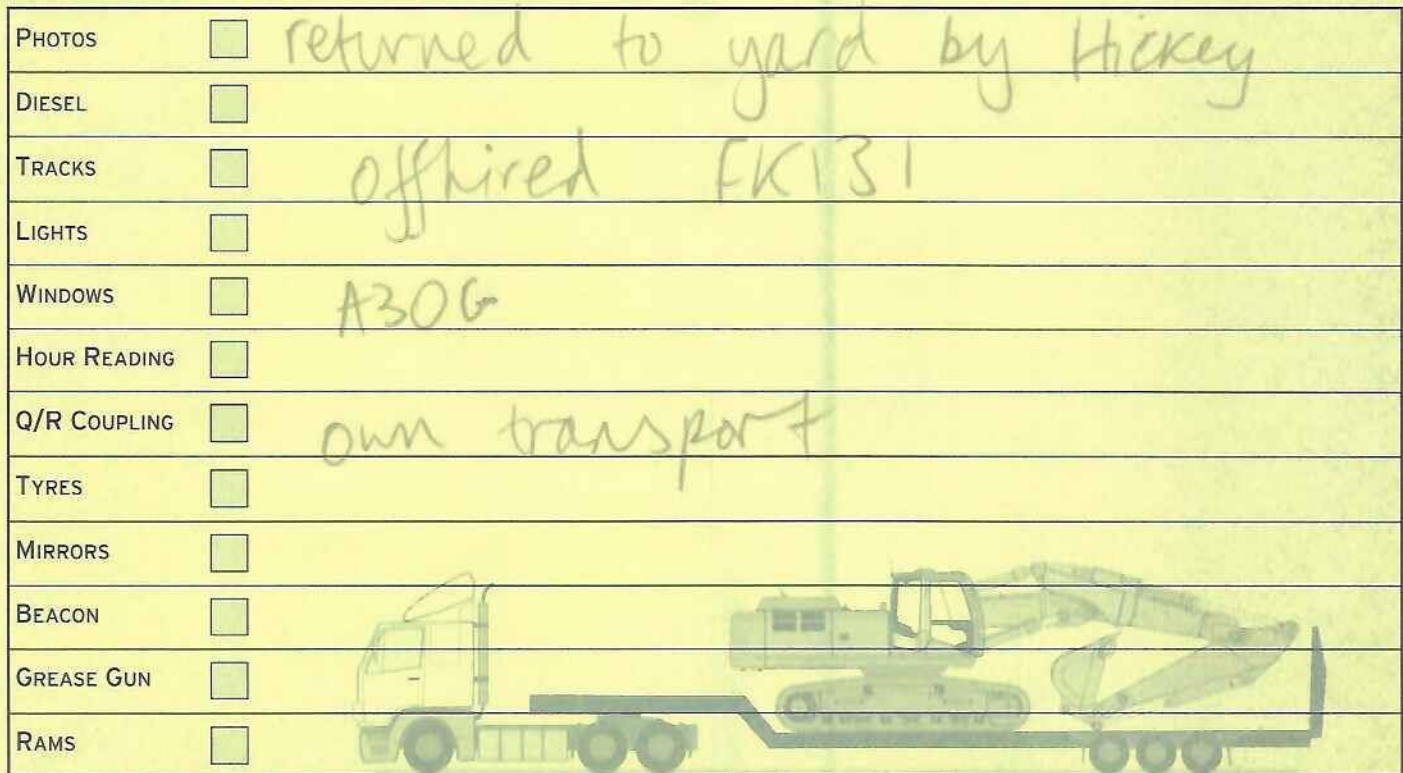 PHOTOS returned to yard by Hickey
DIESEL
TRACKS offhired FK131
LIGHTS
WINDOWS A30G
HOUR READING
Q/R COUPLING own transport
TYRES
MIRRORS
BEACON
GREASE GUN
RAMS